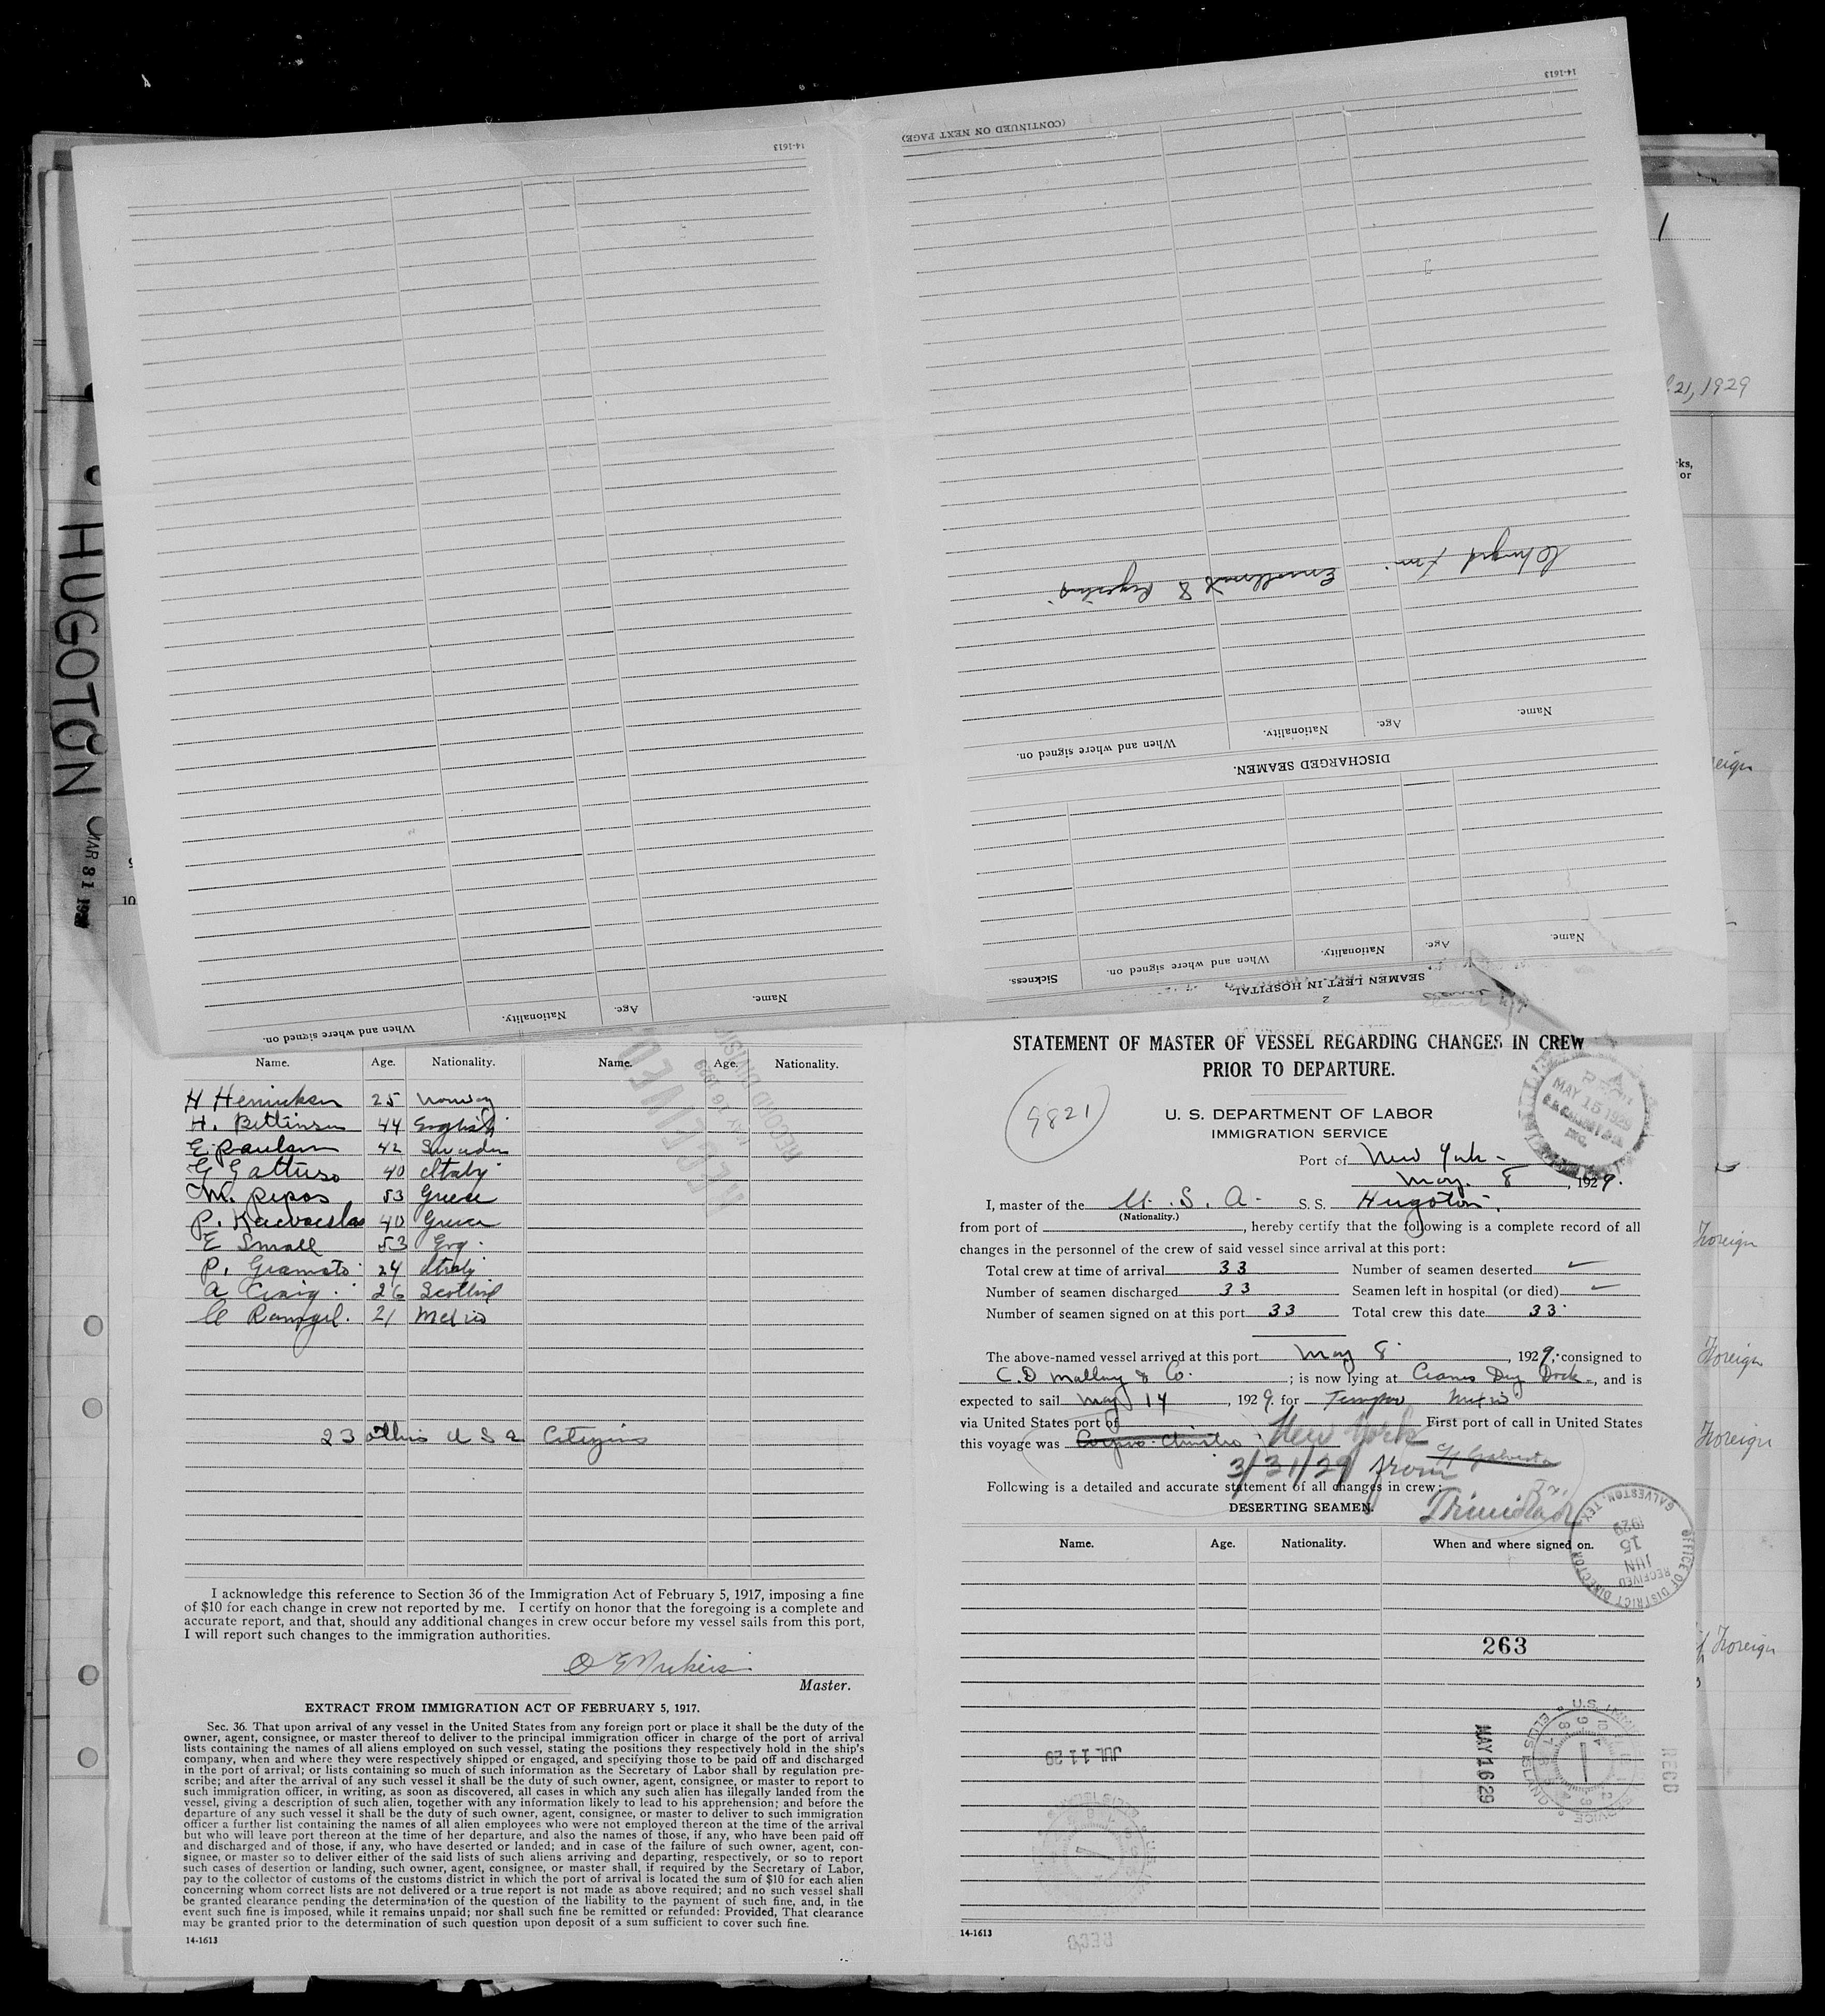 14-1613
14-1613
(CONTINUED ON NEXT PAGE)
1
21, 1929
ks,
or
HUGOTON
MAR 31 19
10
Enrollment & Register
Name.
Age.
Nationality.
When and where signed on.
DISCHARGED SEAMEN.
Name.
Age.
Nationality.
When and where signed on.
Sickness.
SEAMEN LEFT IN HOSPITAL
2
Name.
Age.
Nationality.
When and where signed on.
Name. Age. Nationality. Name. Age. Nationality.
RECEIVED
MAY 16 1929
RECORD DIVISION
H Henricksen 25 Norway
H. Bettinson 44 English
E. Paulsen 42 Sweden
G Gattuso 40 Italy
M. Pepas 53 Greece
P. 40 Greece
E Small 53 Eng.
P. Gramato 24 Italy
A Craig. 26 Scotland
C Rangel. 21 Mexico
23 others U S A Citizens
I acknowledge this reference to Section 36 of the Immigration Act of February 5, 1917, imposing a fine
of $10 for each change in crew not reported by me. I certify on honor that the foregoing is a complete and
accurate report, and that, should any additional changes in crew occur before my vessel sails from this port,
I will report such changes to the immigration authorities.
Master.
EXTRACT FROM IMMIGRATION ACT OF FEBRUARY 5, 1917.
Sec. 36. That upon arrival of any vessel in the United States from any foreign port or place it shall be the duty of the
owner, agent, consignee, or master thereof to deliver to the principal immigration officer in charge of the port of arrival
lists containing the names of all aliens employed on such vessel, stating the positions they respectively hold in the ship's
company, when and where they were respectively shipped or engaged, and specifying those to be paid off and discharged
in the port of arrival; or lists containing so much of such information as the Secretary of Labor shall by regulation pre-
scribe; and after the arrival of any such vessel it shall be the duty of such owner, agent, consignee, or master to report to
such immigration officer, in writing, as soon as discovered, all cases in which any such alien has illegally landed from the
vessel, giving a description of such alien, together with any information likely to lead to his apprehension; and before the
departure of any such vessel it shall be the duty of such owner, agent, consignee, or master to deliver to such immigration
officer a further list containing the names of all alien employees who were not employed thereon at the time of the arrival
but who will leave port thereon at the time of her departure, and also the names of those, if any, who have been paid off
and discharged and of those, if any, who have deserted or landed; and in case of the failure of such owner, agent, con-
signee, or master so to deliver either of the said lists of such aliens arriving and departing, respectively, or so to report
such cases of desertion or landing, such owner, agent, consignee, or master shall, if required by the Secretary of Labor,
pay to the collector of customs of the customs district in which the port of arrival is located the sum of $10 for each alien
concerning whom correct lists are not delivered or a true report is not made as above required; and no such vessel shall
be granted clearance pending the determination of the question of the liability to the payment of such fine, and, in the
event such fine is imposed, while it remains unpaid; nor shall such fine be remitted or refunded: Provided, That clearance
may be granted prior to the determination of such question upon deposit of a sum sufficient to cover such fine.
14-1613
STATEMENT OF MASTER OF VESSEL REGARDING CHANGES IN CREW
PRIOR TO DEPARTURE.
9821
U. S. DEPARTMENT OF LABOR
IMMIGRATION SERVICE
MAY 15 1929
INC.
Port of New York
May 8, 1929.
I, master of the U. S. A. S. S. Hugoton,
(Nationality.)
from port of , hereby certify that the following is a complete record of all
changes in the personnel of the crew of said vessel since arrival at this port:
Total crew at time of arrival 33 Number of seamen deserted ✓
Number of seamen discharged 33 Seamen left in hospital (or died) ✓
Number of seamen signed on at this port 33 Total crew this date 33
The above-named vessel arrived at this port May 8, 1929, consigned to
C. D Mallory & Co. ; is now lying at Cranes Dry Dock, and is
expected to sail May 14, 1929. for Tampico Mexico
via United States port of First port of call in United States
this voyage was Corpus Christi New York
3/31/29 from Galveston
Following is a detailed and accurate statement of all changes in crew:
Trinidad
DESERTING SEAMEN.
Name. Age. Nationality. When and where signed on.
OFFICE OF DISTRICT DIRECTOR
RECEIVED
JUN
15
1929
GALVESTON, TEX.
263
JUL 11 29
MAY 16 29
U.S. IMMIGRATION SERVICE
ELLIS ISLAND
RECD
RECD
14-1613
eign
Foreign
Foreign
Foreign
Foreign